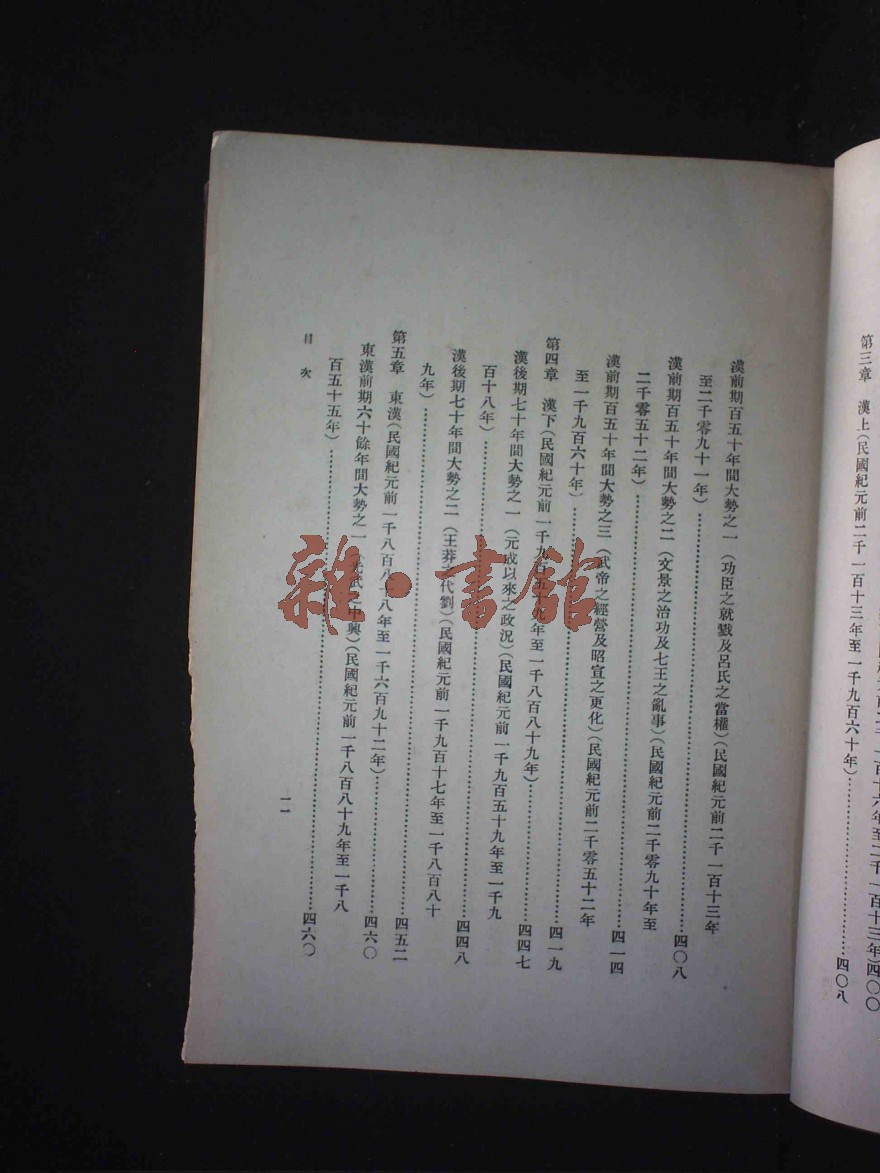 第三章　漢上（民國紀元前二千一百十三年至一千九百六十年）……四〇八
漢前期百五十年間大勢之一（功臣之就戮及呂氏之當權）（民國紀元前二千一百十三年
至二千零九十一年）……四〇八
漢前期百五十年間大勢之二（文景之治功及七王之亂事）（民國紀元前二千零九十年至
二千零五十二年）……四一四
漢前期百五十年間大勢之三（武帝之經營及昭宣之更化）（民國紀元前二千零五十二年
至一千九百六十年）……四一九
第四章　漢下（民國紀元前一千九百五十九年至一千八百八十九年）……四四七
漢後期七十年間大勢之一（元成以來之政況）（民國紀元前一千九百五十九年至一千九
百十八年）……四四八
漢後期七十年間大勢之二（王莽之代劉）（民國紀元前一千九百十七年至一千八百八十
九年）……四五二
第五章　東漢（民國紀元前一千八百八十八年至一千六百九十二年）……四六〇
東漢前期六十餘年間大勢之一（光武之中興）（民國紀元前一千八百八十九年至一千八
百五十五年）……四六〇
目次
一一
雜·書館